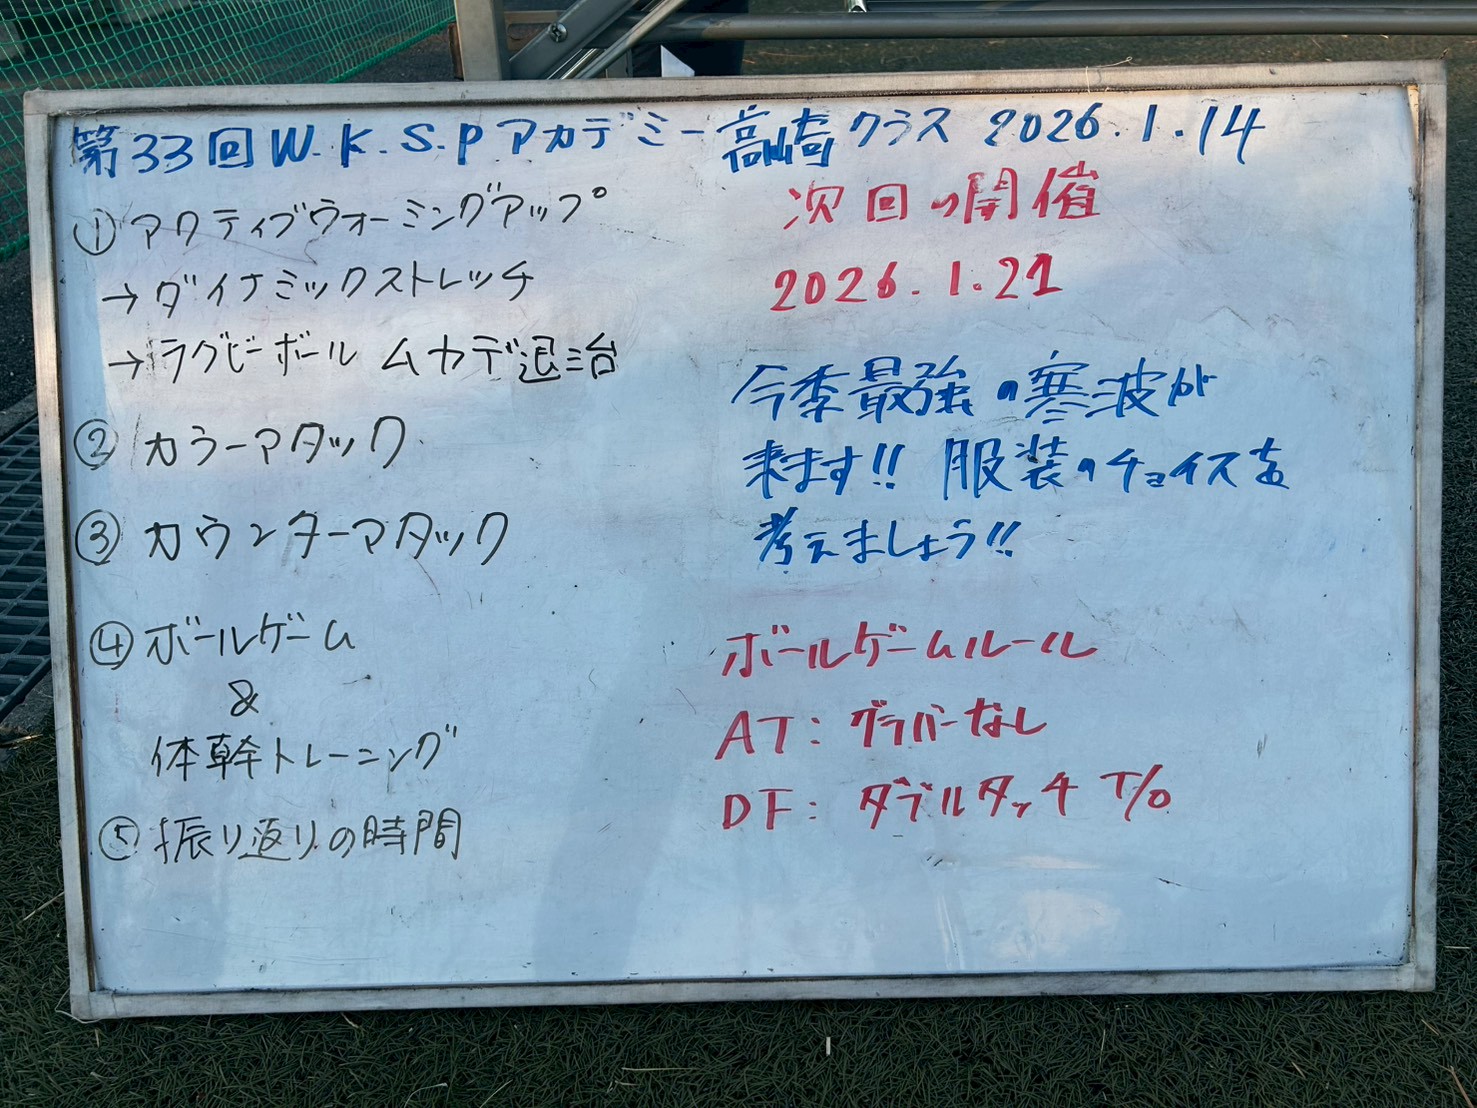 第33回W.K.S.Pアカデミー高崎クラス 2026.1.14
①アクティブウォーミングアップ
→ダイナミックストレッチ
→ラグビーボール ムカデ退治
②カラーマタック
③カウンターマタック
④ボールゲーム
&
体幹トレーニング
⑤振り返りの時間
次回の開催
2026.1.21
今季最強の寒波が
来ます!! 服装のチョイスを
考えましょう!!
ボールゲームルール
AT：グラバーなし
DF：ダブルタッチ T/O